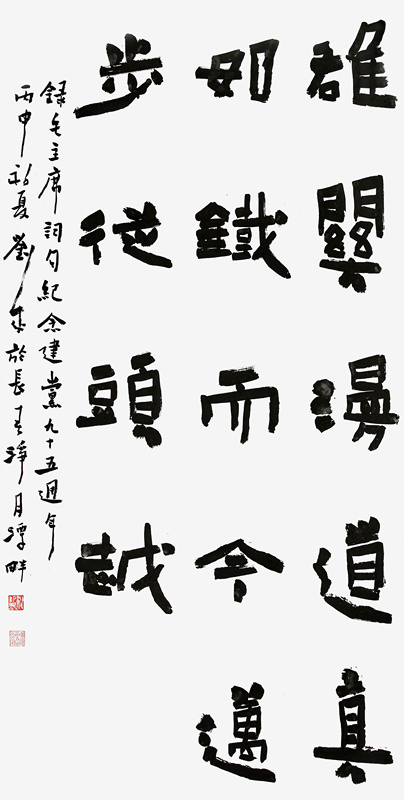 雄關漫道真
如鐵而今邁
步從頭越
錄毛主席詞句紀念建黨九十五週年
丙申初夏劉成於長春淨月潭畔